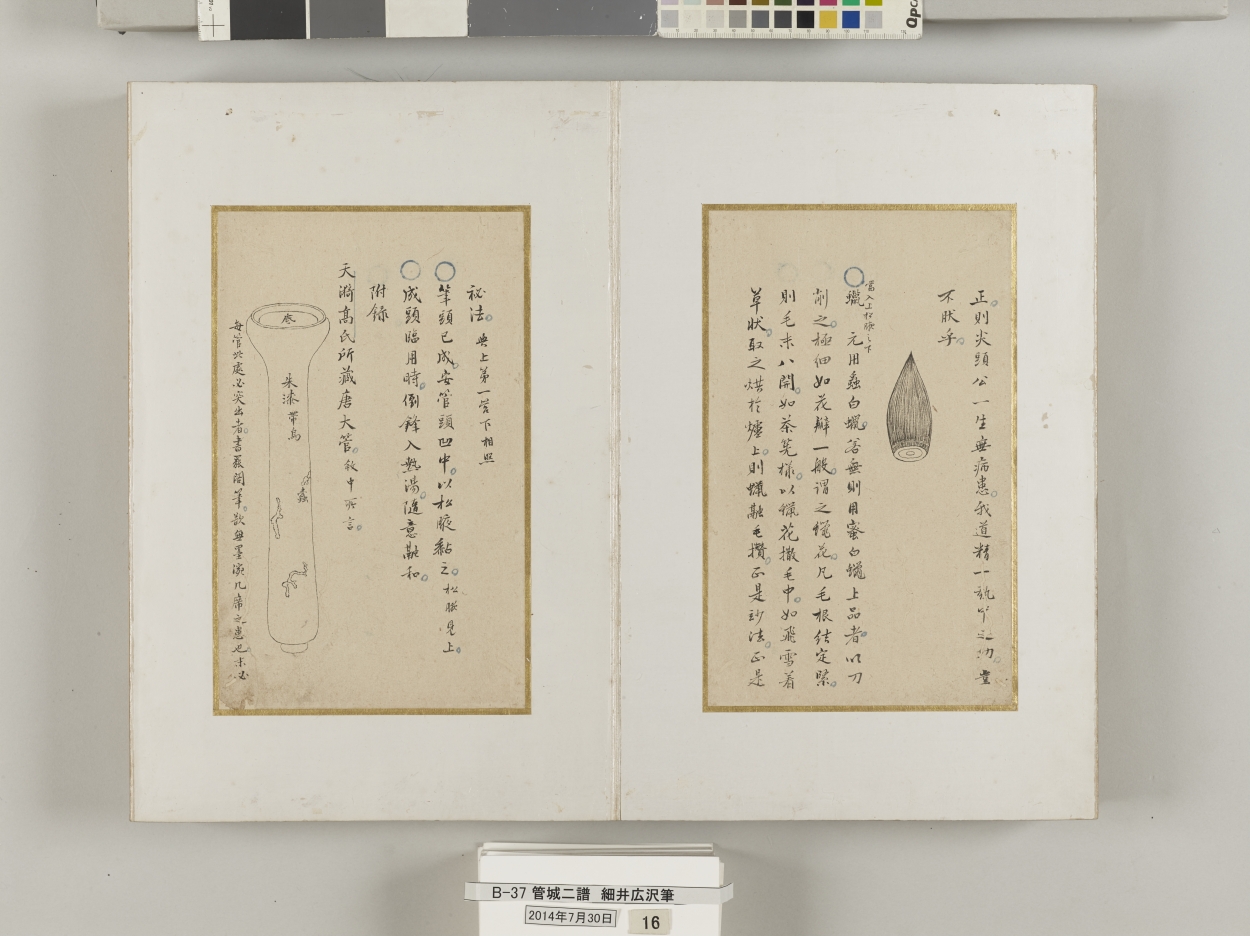 正則尖頭公一生無病患我道精一執中之功豈
不快乎
蠟 元用蟲白蠟若無則用蜜白蠟上品者以刀
當入上松脂之下
削之極細如花瓣一般謂之蠟花凡毛根結定緊
則毛末八開如茶筅樣以蠟花撒毛中如飛雪着
草狀取之烘於爐上則蠟融毛攢正是妙法正是
秘法 與上第一管下相照
筆頭已成安管頭凹中以松脂黏之松脂見上
成頭臨用時倒鋒入熱湯隨意融和
附錄
天漪高氏所藏唐大管 秋中所言
朱漆帶烏
每管此處必突出者書罷閣筆欲無墨瀋几席之患也未必
B-37 管城二譜 細井広沢筆
2014年7月30日
16